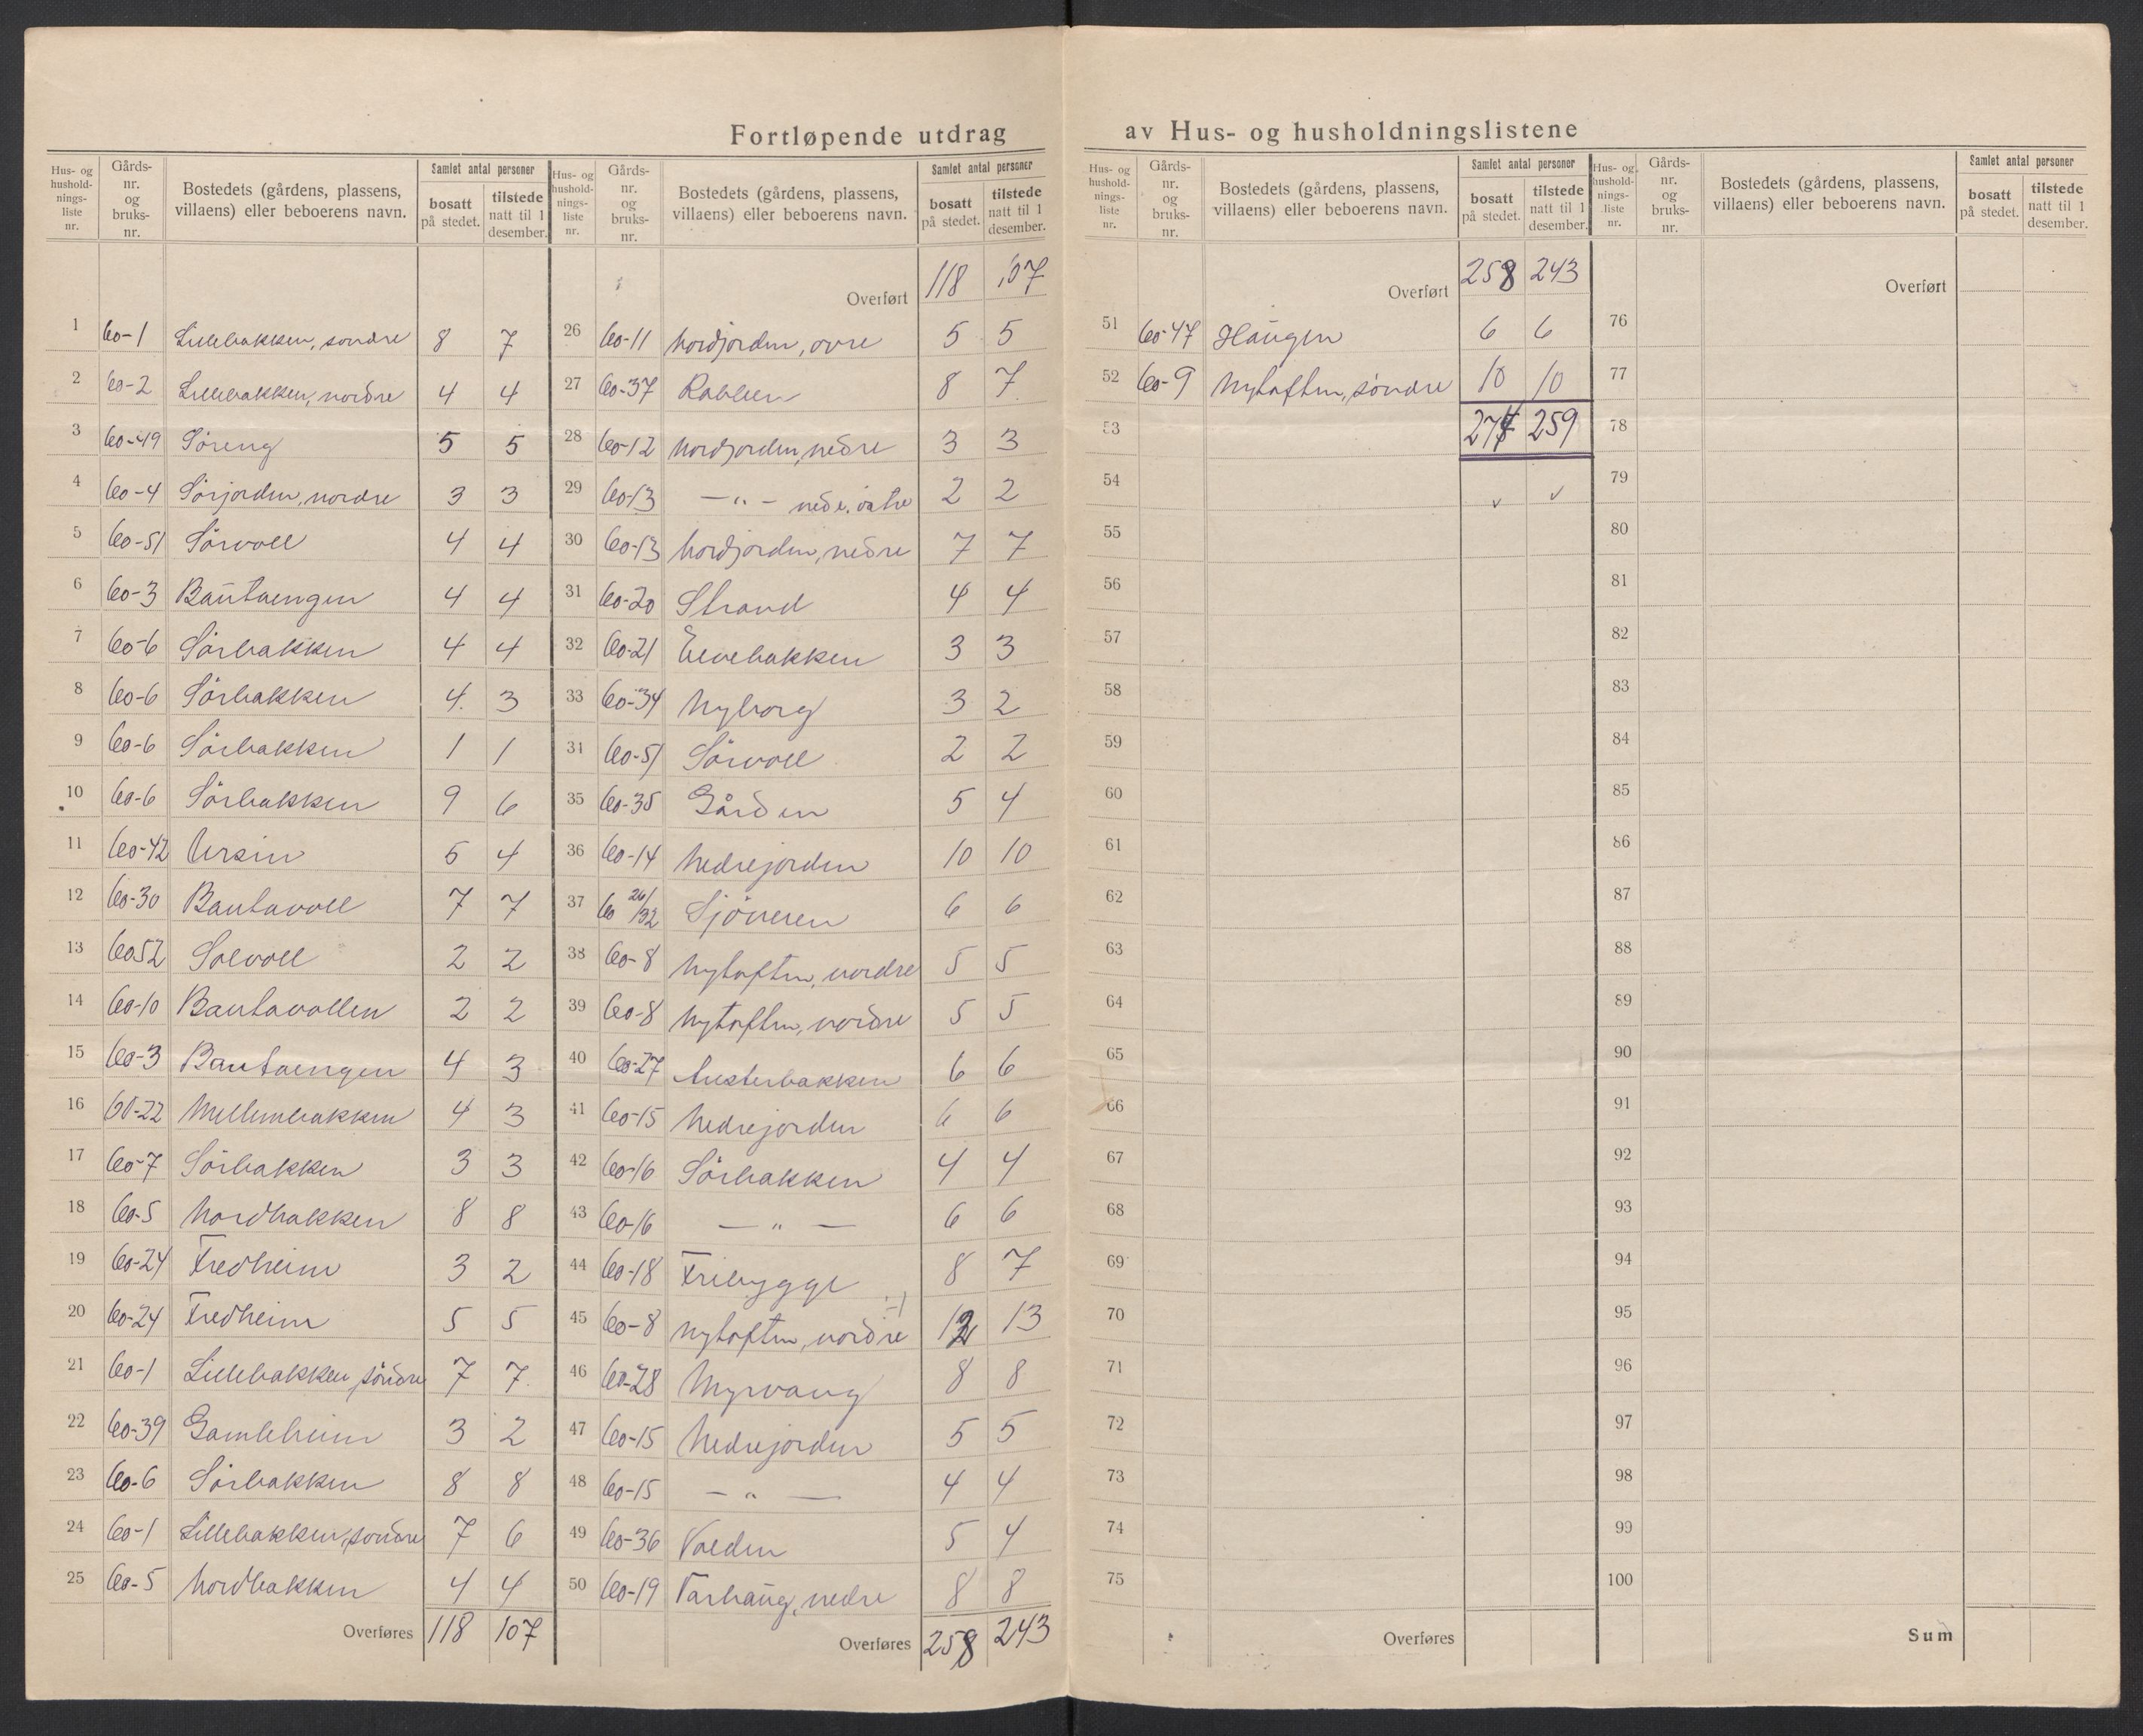 Fortløpende utdrag av Hus- og husholdningslistene
Hus- og hushold-nings-liste nr. Gårds-nr. og bruks-nr. Bostedets (gårdens, plassens, villaens) eller beboerens navn. Samlet antal personer bosatt på stedet. tilstede natt til 1 desember.
1 60-1 Lillebakken, søndre 8 7
2 60-2 Lillebakken, nordre 4 4
3 60-49 Söreng 5 5
4 60-4 Sörjorden, nordre 3 3
5 60-51 Sörvoll 4 4
6 60-3 Bautaengen 4 4
7 60-6 Sörbakken 4 4
8 60-6 Sörbakken 4. 3
9 60-6 Sörbakken 1 1
10 60-6 Sörbakken 9 6
11 60-42 Ursin 5 4
12 60-30 Bautavoll 7 7
13 60 52 Solvoll 2 2
14 60-10 Bautavollen 2 2
15 60-3 Bautaengen 4 3
16 60-22 Mellembakken 4 3
17 60-7 Sörbakken 3 3
18 60-5 Nordbakken 8 8
19 60-24 Fredheim 3 2
20 60-24 Fredheim 5 5
21 60-1 Lillebakken, söndre 7 7
22 60-39 Gamleheim 3 2
23 60-6 Sörbakken 8 8
24 60-1 Lillebakken, söndre 7 6
25 60-5 Nordbakken 4 4
Overføres 118 107
Hus- og hushold-nings-liste nr. Gårds-nr. og bruks-nr. Bostedets (gårdens, plassens, villaens) eller beboerens navn. Samlet antal personer bosatt på stedet. tilstede natt til 1 desember.
Overført 118 107
26 60-11 Nordjorden, övre 5 5
27 60-37 Rabben 8 7
28 60-12 Nordjorden, nedre 3 3
29 60-13 — " — 2 2
30 60-13 Nordjorden, nedre 7 7
31 60-20 Strand 4 4
32 60-21 Elvebakken 3 3
33 60-34 Nyborg 3 2
34 60-51 Sörvoll 2 2
35 60-35 Gården 5 4
36 60-14 Nedrejorden 10 10
37 60 26/32 6 6
38 60-8 Nytoften, nordre 5 5
39 60-8 Nytoften, nordre 5 5
40 60-27 6 6
41 60-15 Nedrejorden 6 6
42 60-16 Sörbakken 4 4
43 60-16 — " — 6 6
44 60-18 Fribygge 8 7
45 60-8 Nytoften, nordre 12 13
46 60-28 Myrvang 8 8
47 60-15 Nedrejorden 5 5
48 60-15 — " — 4 4
49 60-36 Volden 5 4
50 60-19 Varhaug, nedre 8 8
Overføres 258 243
Hus- og hushold-nings-liste nr. Gårds-nr. og bruks-nr. Bostedets (gårdens, plassens, villaens) eller beboerens navn. Samlet antal personer bosatt på stedet. tilstede natt til 1 desember.
Overført 258 243
51 60-47 Haugen 6 6
52 60-9 Nytoften, söndre 10 10
53 274 259
54 v v
55
56
57
58
59
60
61
62
63
64
65
66
67
68
69
70
71
72
73
74
75
Overføres
Hus- og hushold-nings-liste nr. Gårds-nr. og bruks-nr. Bostedets (gårdens, plassens, villaens) eller beboerens navn. Samlet antal personer bosatt på stedet. tilstede natt til 1 desember.
Overført
76
77
78
79
80
81
82
83
84
85
86
87
88
89
90
91
92
93
94
95
96
97
98
99
100
Sum